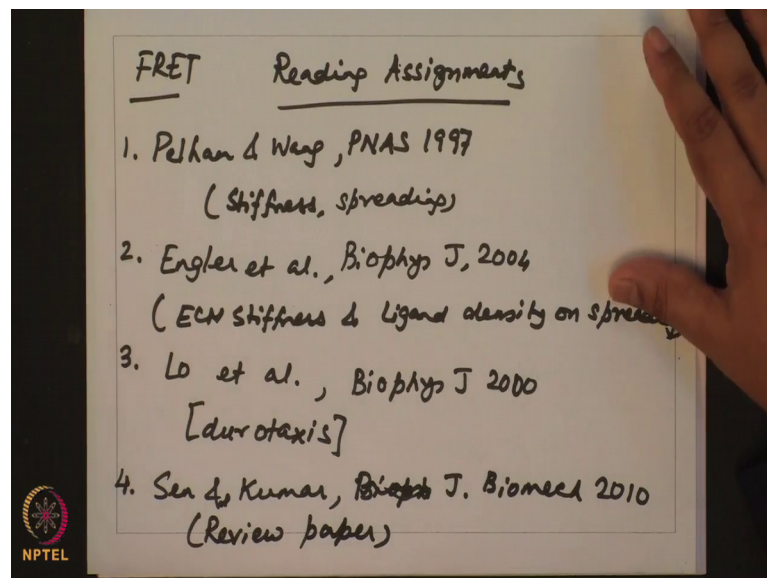 FRET Reading Assignments
1. Pelham & Wang, PNAS 1997
(Stiffness, spreading)
2. Engler et al., Biophys J, 2004
(ECM Stiffness & Ligand density on spreading
3. Lo et al., Biophys J 2000
[durotaxis]
4. Sen & Kumar, J. Biomech 2010
(Review paper)
NPTEL